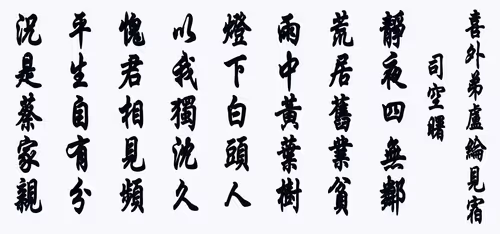 喜外弟盧綸見宿
司空曙
靜夜四無鄰
荒居舊業貧
雨中黃葉樹
燈下白頭人
以我獨沈久
愧君相見頻
平生自有分
況是蔡家親